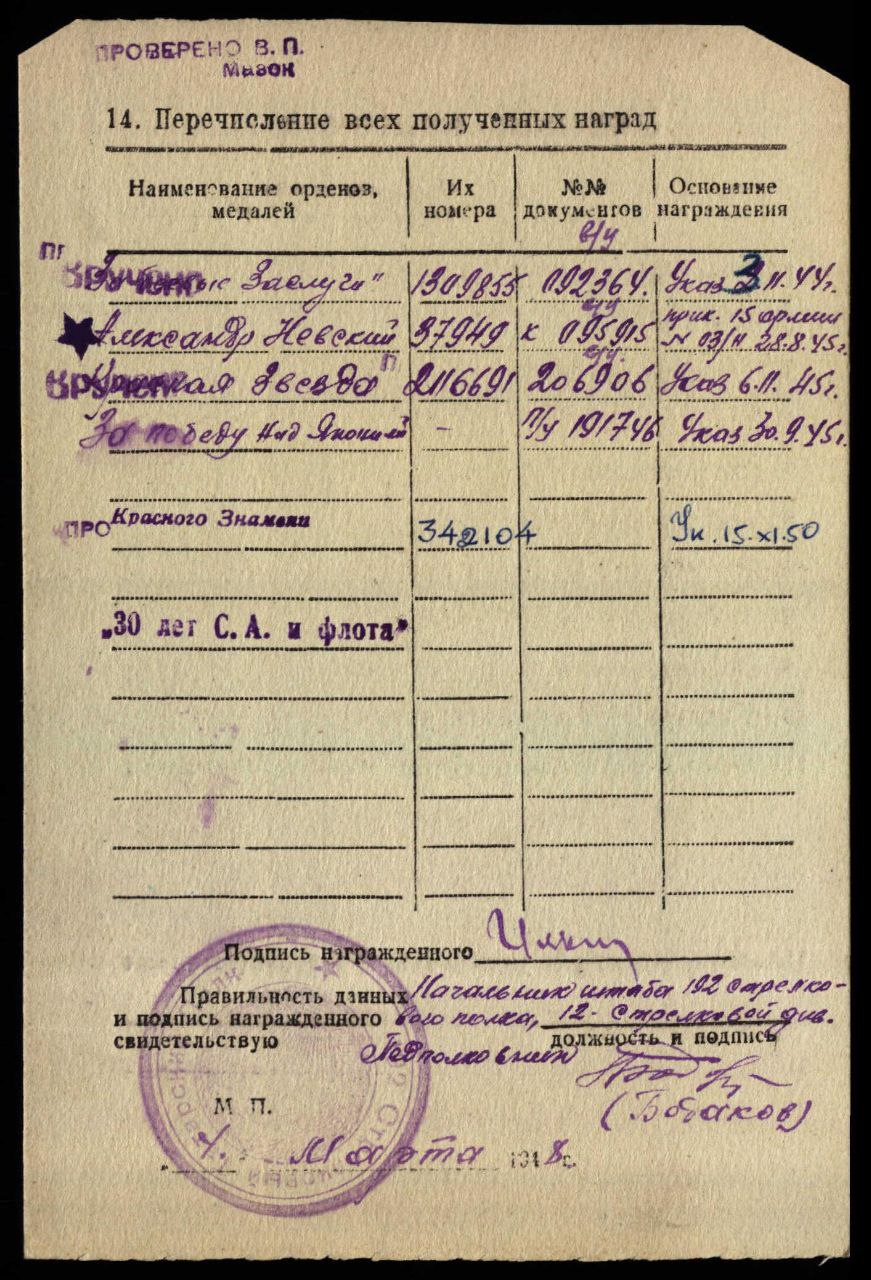 ПРОВЕРЕНО В. П.
Мазок
14. Перечисление всех полученных наград
Наименование орденов, медалей
Их номера
№№ документов
Основание награждения
в/у
Вручено
"За боевые Заслуги" 1309855 092364. Указ 3.11.44г.
Александр Невский 37949 к 095915 прик. 15 армии N 03/н 28.8.45г.
в/у
Вручено
Красная Звезда 2116691 206906 Указ 6.11.45г.
в/у
За победу над Японией - П/у 191746 Указ 30.9.45г.
ПРО
Красного Знамени 342104 Ук. 15.XI.50
„30 лет С. А. и флота"
Подпись награжденного
Правильность данных Начальник штаба 192 стрелко-
и подпись награжденного вого полка, 12-Стрелковой див.
свидетельствую должность и подпись
Подполковник
М П.
(Бобаков)
„4." Марта 1948г.